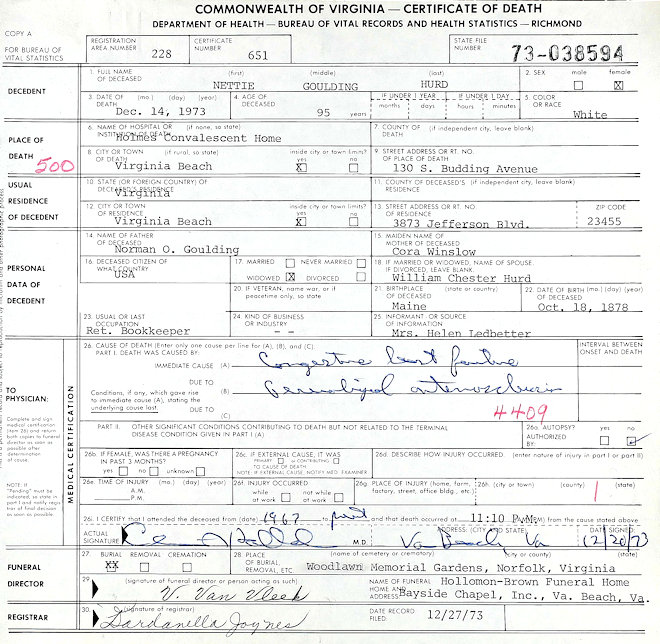 COMMONWEALTH OF VIRGINIA — CERTIFICATE OF DEATH
DEPARTMENT OF HEALTH — BUREAU OF VITAL RECORDS AND HEALTH STATISTICS — RICHMOND
COPY A
FOR BUREAU OF VITAL STATISTICS
REGISTRATION AREA NUMBER 228 CERTIFICATE NUMBER 651 STATE FILE NUMBER 73-038594
DECEDENT
1. FULL NAME OF DECEASED (first) (middle) (last) 2. SEX male female
NETTIE GOULDING HURD X
3. DATE OF DEATH (mo.) (day) (year) 4. AGE OF DECEASED IF UNDER 1 YEAR IF UNDER 1 DAY 5. COLOR OR RACE
months days hours minutes
Dec. 14, 1973 95 years White
PLACE OF DEATH 500
6. NAME OF HOSPITAL OR INSTITUTION OF DEATH (if none, so state) 7. COUNTY OF DEATH (if independent city, leave blank)
Holmes Convalescent Home
8. CITY OR TOWN OF DEATH (if rural, so state) inside city or town limits? yes no 9. STREET ADDRESS OR RT. NO. OF PLACE OF DEATH
Virginia Beach X 130 S. Budding Avenue
USUAL RESIDENCE OF DECEDENT
10. STATE (OR FOREIGN COUNTRY) OF DECEASED'S RESIDENCE 11. COUNTY OF DECEASED'S RESIDENCE (if independent city, leave blank)
Virginia
12. CITY OR TOWN OF RESIDENCE inside city or town limits? yes no 13. STREET ADDRESS OR RT. NO. OF RESIDENCE ZIP CODE
Virginia Beach X 3873 Jefferson Blvd. 23455
PERSONAL DATA OF DECEDENT
14. NAME OF FATHER OF DECEASED 15. MAIDEN NAME OF MOTHER OF DECEASED
Norman O. Goulding Cora Winslow
16. DECEASED CITIZEN OF WHAT COUNTRY 17. MARRIED NEVER MARRIED 18. IF MARRIED OR WIDOWED, NAME OF SPOUSE. IF DIVORCED, LEAVE BLANK.
USA WIDOWED X DIVORCED William Chester Hurd
20. IF VETERAN, name war, or if peacetime only, so state 21. BIRTHPLACE OF DECEASED (state or country) 22. DATE OF BIRTH (mo.) (day) (year) OF DECEASED
Maine Oct. 18, 1878
23. USUAL OR LAST OCCUPATION 24. KIND OF BUSINESS OR INDUSTRY 25. INFORMANT - OR SOURCE OF INFORMATION
Ret. Bookkeeper - - Mrs. Helen Ledbetter
TO PHYSICIAN:
Complete and sign medical certification (item 26) and return both copies to funeral director as soon as possible after determination of cause.
NOTE: If "Pending" must be indicated, so state in part I and notify registrar of final decision as soon as possible.
MEDICAL CERTIFICATION
26. CAUSE OF DEATH (Enter only one cause per line for (A), (B), and (C). INTERVAL BETWEEN ONSET AND DEATH
PART I. DEATH WAS CAUSED BY:
IMMEDIATE CAUSE (A) Congestive heart failure
Conditions, if any, which gave rise to immediate cause (A), stating the underlying cause last.
DUE TO (B) Generalized arteriosclerosis
DUE TO (C) 4409
PART II. OTHER SIGNIFICANT CONDITIONS CONTRIBUTING TO DEATH BUT NOT RELATED TO THE TERMINAL DISEASE CONDITION GIVEN IN PART I (A) 26a. AUTOPSY? yes no
AUTHORIZED BY:
26b. IF FEMALE, WAS THERE A PREGNANCY IN PAST 3 MONTHS? yes no unknown
26c. IF EXTERNAL CAUSE, IT WAS PRIMARY or CONTRIBUTING TO CAUSE OF DEATH.
NOTE: IF EXTERNAL CAUSE, NOTIFY MED. EXAMINER
26d. DESCRIBE HOW INJURY OCCURRED. (enter nature of injury in part I or part II)
26e. TIME OF INJURY (mo.) (day) (year) A.M. P.M.
26f. INJURY OCCURRED while at work not while at work
26g PLACE OF INJURY (home, farm, factory, street, office bldg., etc.) 26h. (city or town) (county) (state)
1
26i. I CERTIFY that I attended the deceased from (date) 1967 to and that death occurred at 11:10 P.M. (M) from the cause stated above
ACTUAL SIGNATURE M.D. ADDRESS: (CITY AND STATE) DATE SIGNED:
Va Beach, Va 12/20/73
FUNERAL DIRECTOR
27. BURIAL REMOVAL CREMATION 28. PLACE OF BURIAL, REMOVAL, ETC. (name of cemetery or crematory) (city or county) (state)
XX Woodlawn Memorial Gardens, Norfolk, Virginia
29. (signature of funeral director or person acting as such) NAME OF FUNERAL HOME AND ADDRESS:
V. Van Vleek Hollomon-Brown Funeral Home
Bayside Chapel, Inc., Va. Beach, Va.
REGISTRAR
30. (signature of registrar) DATE RECORD FILED 12/27/73
Dardanella Joynes